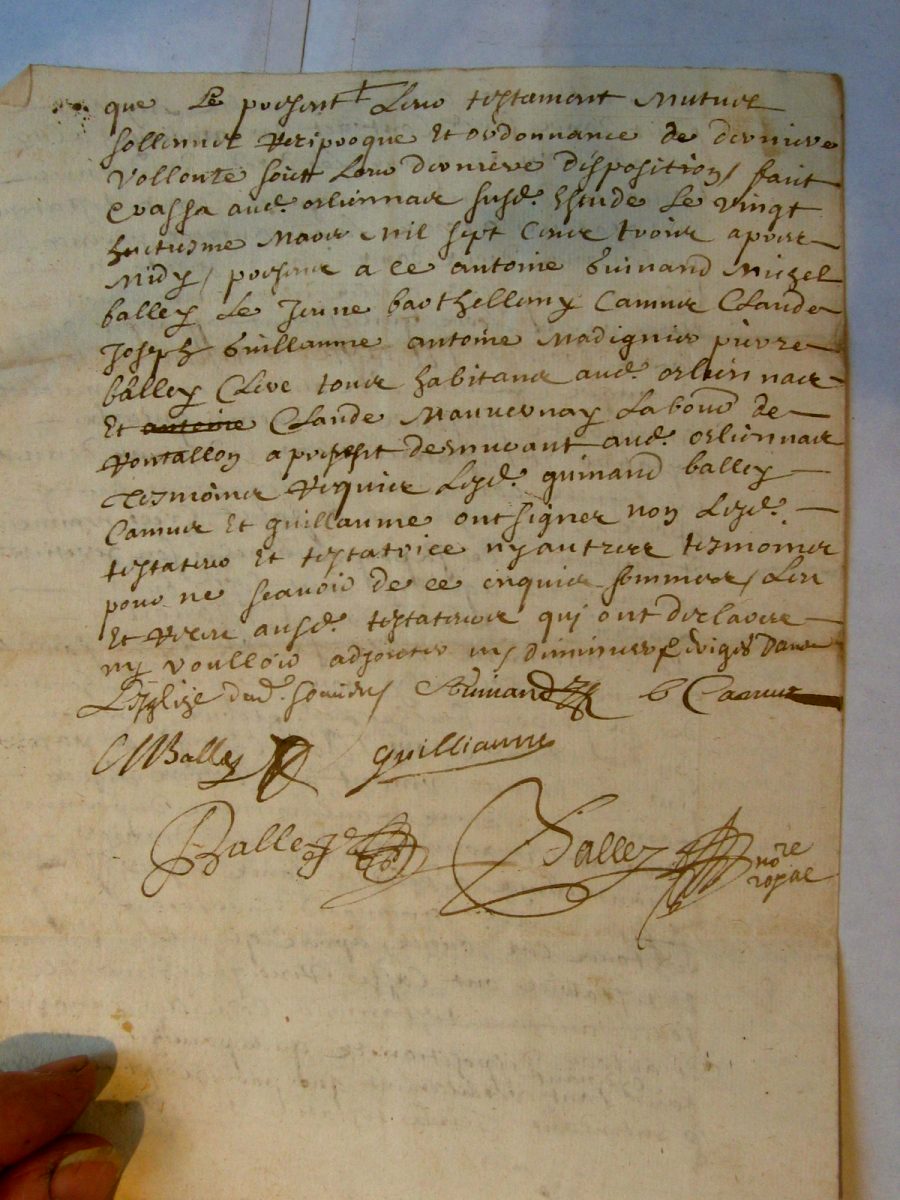 que Le present Leur testament Mutuel
sollennel Resiproque Et ordonnance de derniere
vollonte soit Leur derniere disposition, fait
Et passa aud. orliennas susd. Estude Le vingt
huitiesme Mars Mil sept Cens trois apres
Midy, presens a ce antoine Guinand Michel
balley Le Jeune barthellemy Camus Claude
Joseph Guillaume antoine Madignier pierre
balley Clerc tous habitans aud. orliennas
Et antoine Claude Mauvernay Labour de
Rontallon a present demeurant aud. orliennas
Tesmoins Requis Lesd. guinand balley
Camus Et guillaume ont signes non Lesd.
testateur Et testatrice ny autres tesmoins
pour ne scavoir de ce enquis sommes, Leu
Et Releu ausd. testateurs qui ont declares
ny voulloir adjouter ny diminuer, Eriges dans
L'Esglize dud. Guinand b Camus
M Balley guilliaume
Balley Balley no.re
royal